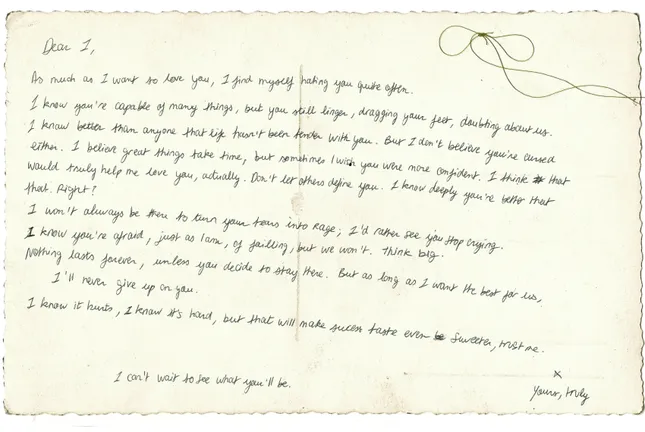 Dear I,
As much as I want to love you, I find myself hating you quite often.
I know you're capable of many things, but you still linger, dragging your feet, doubting about us.
I know better than anyone that life hasn't been tender with you. But I don't believe you're cursed
either. I believe great things take time, but sometimes I wish you were more confident. I think that
would truly help me love you, actually. Don't let others define you. I know deeply you're better that
that. Right?
I won't always be there to turn your tears into Rage; I'd rather see you stop crying.
I know you're afraid, just as I am, of failling, but we won't. Think big.
Nothing lasts forever, unless you decide to stay there. But as long as I want the best for us,
I'll never give up on you.
I know it hurts, I know it's hard, but that will make sucess taste even sweeter, trust me.
I can't wait to see what you'll be.
x
Yours, truly